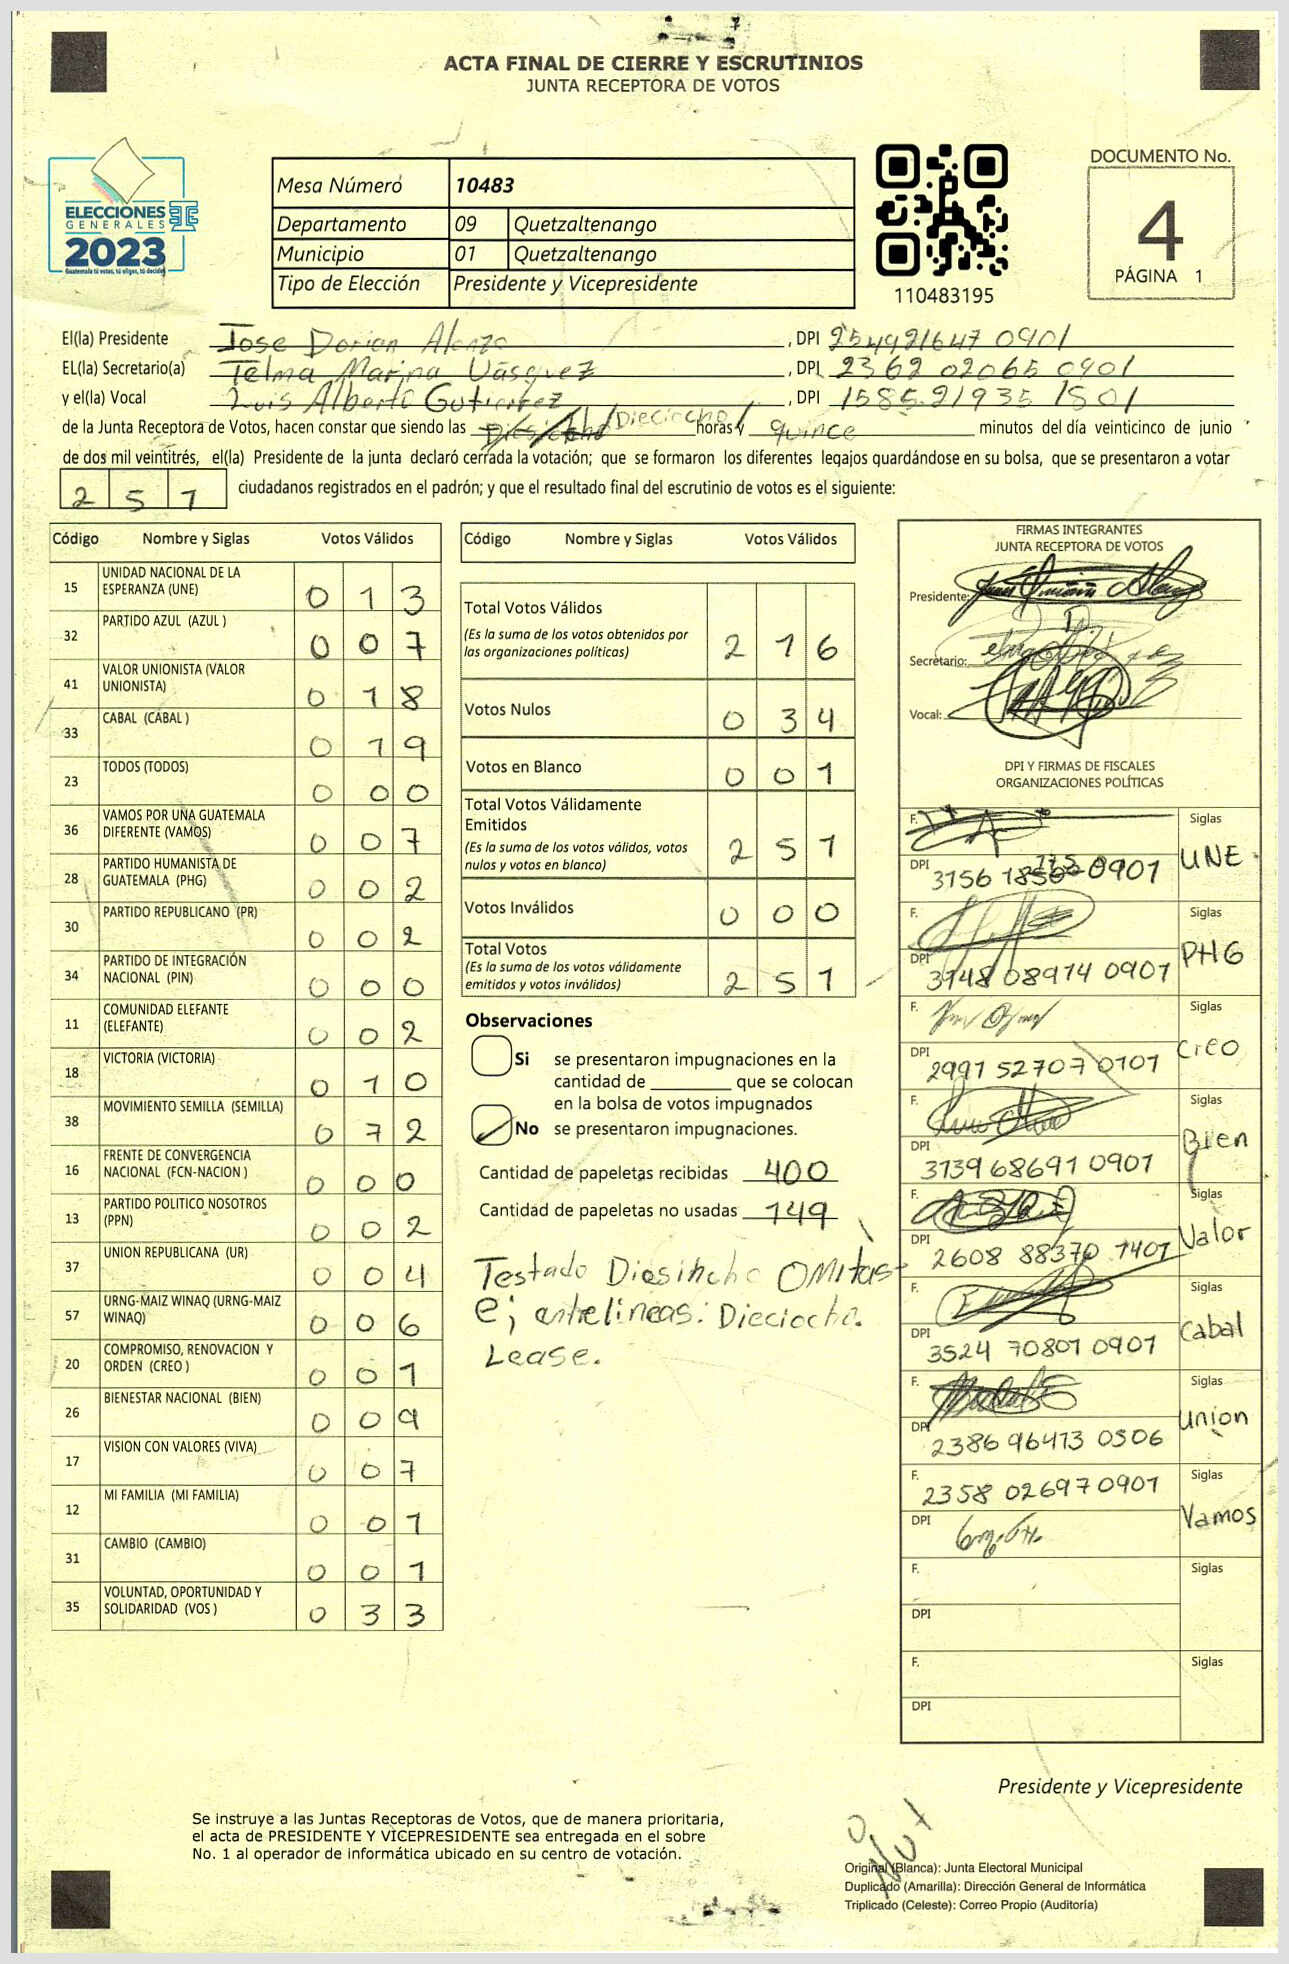 ACTA FINAL DE CIERRE Y ESCRUTINIOS
JUNTA RECEPTORA DE VOTOS
ELECCIONES
GENERALES
2023
Guatemala tú votas, tú eliges, tú decides
Mesa Número 10483
Departamento 09 Quetzaltenango
Municipio 01 Quetzaltenango
Tipo de Elección Presidente y Vicepresidente
110483195
DOCUMENTO No.
4
PÁGINA 1
El(la) Presidente Jose Dorian Alonzo , DPI 254921647 0901
EL(la) Secretario(a) Telma Marina Vásquez , DPI 2362 02065 0901
y el(la) Vocal Luis Alberto Gutierrez , DPI 1585 21935 1801
de la Junta Receptora de Votos, hacen constar que siendo las Diesicho /Dieciocho/ horas y quince minutos del día veinticinco de junio
de dos mil veintitrés, el(la) Presidente de la junta declaró cerrada la votación; que se formaron los diferentes legajos quardándose en su bolsa, que se presentaron a votar
2 5 1 ciudadanos registrados en el padrón; y que el resultado final del escrutinio de votos es el siguiente:
Código Nombre y Siglas Votos Válidos
15 UNIDAD NACIONAL DE LA ESPERANZA (UNE) 0 1 3
32 PARTIDO AZUL (AZUL ) 0 0 7
41 VALOR UNIONISTA (VALOR UNIONISTA) 0 1 8
33 CABAL (CABAL ) 0 1 9
23 TODOS (TODOS) 0 0 0
36 VAMOS POR UNA GUATEMALA DIFERENTE (VAMOS) 0 0 7
28 PARTIDO HUMANISTA DE GUATEMALA (PHG) 0 0 2
30 PARTIDO REPUBLICANO (PR) 0 0 2
34 PARTIDO DE INTEGRACIÓN NACIONAL (PIN) 0 0 0
11 COMUNIDAD ELEFANTE (ELEFANTE) 0 0 2
18 VICTORIA (VICTORIA) 0 1 0
38 MOVIMIENTO SEMILLA (SEMILLA) 0 7 2
16 FRENTE DE CONVERGENCIA NACIONAL (FCN-NACION ) 0 0 0
13 PARTIDO POLITICO NOSOTROS (PPN) 0 0 2
37 UNION REPUBLICANA (UR) 0 0 4
57 URNG-MAIZ WINAQ (URNG-MAIZ WINAQ) 0 0 6
20 COMPROMISO, RENOVACION Y ORDEN (CREO ) 0 0 1
26 BIENESTAR NACIONAL (BIEN) 0 0 9
17 VISION CON VALORES (VIVA) 0 0 7
12 MI FAMILIA (MI FAMILIA) 0 0 1
31 CAMBIO (CAMBIO) 0 0 1
35 VOLUNTAD, OPORTUNIDAD Y SOLIDARIDAD (VOS ) 0 3 3
Código Nombre y Siglas Votos Válidos
Total Votos Válidos 2 1 6
(Es la suma de los votos obtenidos por
las organizaciones políticas)
Votos Nulos 0 3 4
Votos en Blanco 0 0 1
Total Votos Válidamente
Emitidos 2 5 1
(Es la suma de los votos válidos, votos
nulos y votos en blanco)
Votos Inválidos 0 0 0
Total Votos 2 5 1
(Es la suma de los votos válidamente
emitidos y votos inválidos)
Observaciones
Si se presentaron impugnaciones en la
cantidad de ________ que se colocan
en la bolsa de votos impugnados
No se presentaron impugnaciones.
Cantidad de papeletas recibidas 400
Cantidad de papeletas no usadas 149
Testado Diesihcho OMitas-
e; entrelineas: Dieciocho.
Lease.
FIRMAS INTEGRANTES
JUNTA RECEPTORA DE VOTOS
Presidente:
Secretario:
Vocal:
DPI Y FIRMAS DE FISCALES
ORGANIZACIONES POLÍTICAS
F. Siglas
DPI 3156 0901 UNE
F. Siglas
DPI 3148 08974 0901 PHG
F. Siglas
DPI 2991 52707 0101 Creo
F. Siglas
DPI 3139 68691 0901 Bien
F. Siglas
DPI 2608 88370 1401 Valor
F. Siglas
DPI 3524 70801 0901 Cabal
F. Siglas
DPI 2386 96413 0506 Union
F. 2358 02697 0901 Siglas
DPI Vamos
F. Siglas
DPI
F. Siglas
DPI
Presidente y Vicepresidente
Se instruye a las Juntas Receptoras de Votos, que de manera prioritaria,
el acta de PRESIDENTE Y VICEPRESIDENTE sea entregada en el sobre
No. 1 al operador de informática ubicado en su centro de votación.
Original (Blanca): Junta Electoral Municipal
Duplicado (Amarilla): Dirección General de Informática
Triplicado (Celeste): Correo Propio (Auditoría)